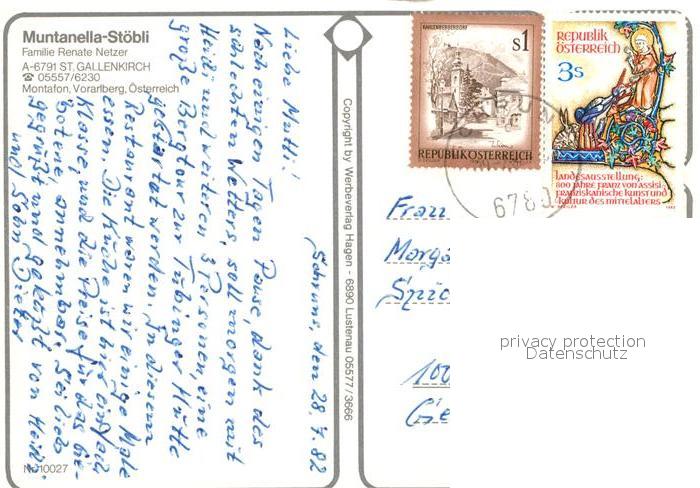 Muntanella-Stöbli
Familie Renate Netzer
A-6791 ST. GALLENKIRCH
☎ 05557/6230
Montafon, Vorarlberg, Österreich
Schruns, den 28.7.82
Liebe Mutti!
Nach einigen Tagen Pause, dank des
schlechten Wetters, soll morgen mit
Heidi und weiteren Personen, eine
große Bergtour zur Tübinger Hütte
gestartet werden. In diesem
Restaurant waren wir einige Male
essen. Die Küche ist hier einfach
Klasse, und die Preise für das Ge-
botene annehmbar. Sei lieb
gegrüßt und geküßt von Heidi
und Sohn Dieter
Nr. 10027
Copyright by Werbeverlag Hagen - 6890 Lustenau 05577/3666
KAHLENBERGERDORF
s1
REPUBLIK ÖSTERREICH
REPUBLIK
ÖSTERREICH
3s
LANDESAUSSTELLUNG:
800 JAHRE FRANZ VON ASSISI
FRANZISKANISCHE KUNST UND
KULTUR DES MITTELALTERS
1982
6780
Frau
Marga
100
privacy protection
Datenschutz